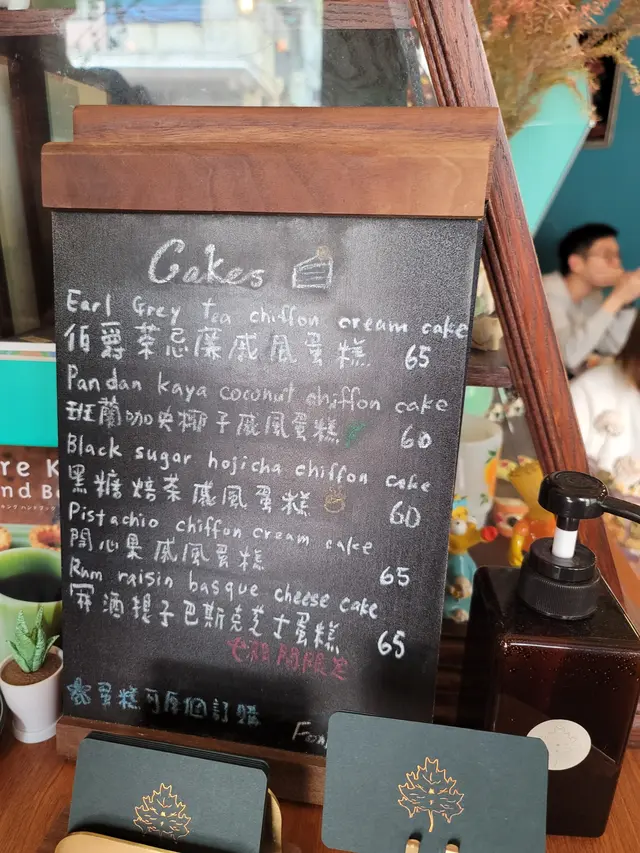 Cakes
Earl Grey tea chiffon cream cake
伯爵茶忌廉戚風蛋糕 65
Pandan kaya coconut chiffon cake
班蘭咖央椰子戚風蛋糕 60
Black sugar hojicha chiffon cake
黑糖焙茶戚風蛋糕 60
Pistachio chiffon cream cake
開心果戚風蛋糕 65
Rum raisin basque cheese cake
提子巴斯克芝士蛋糕 65
限定
蛋糕可原個訂購
re K
nd B